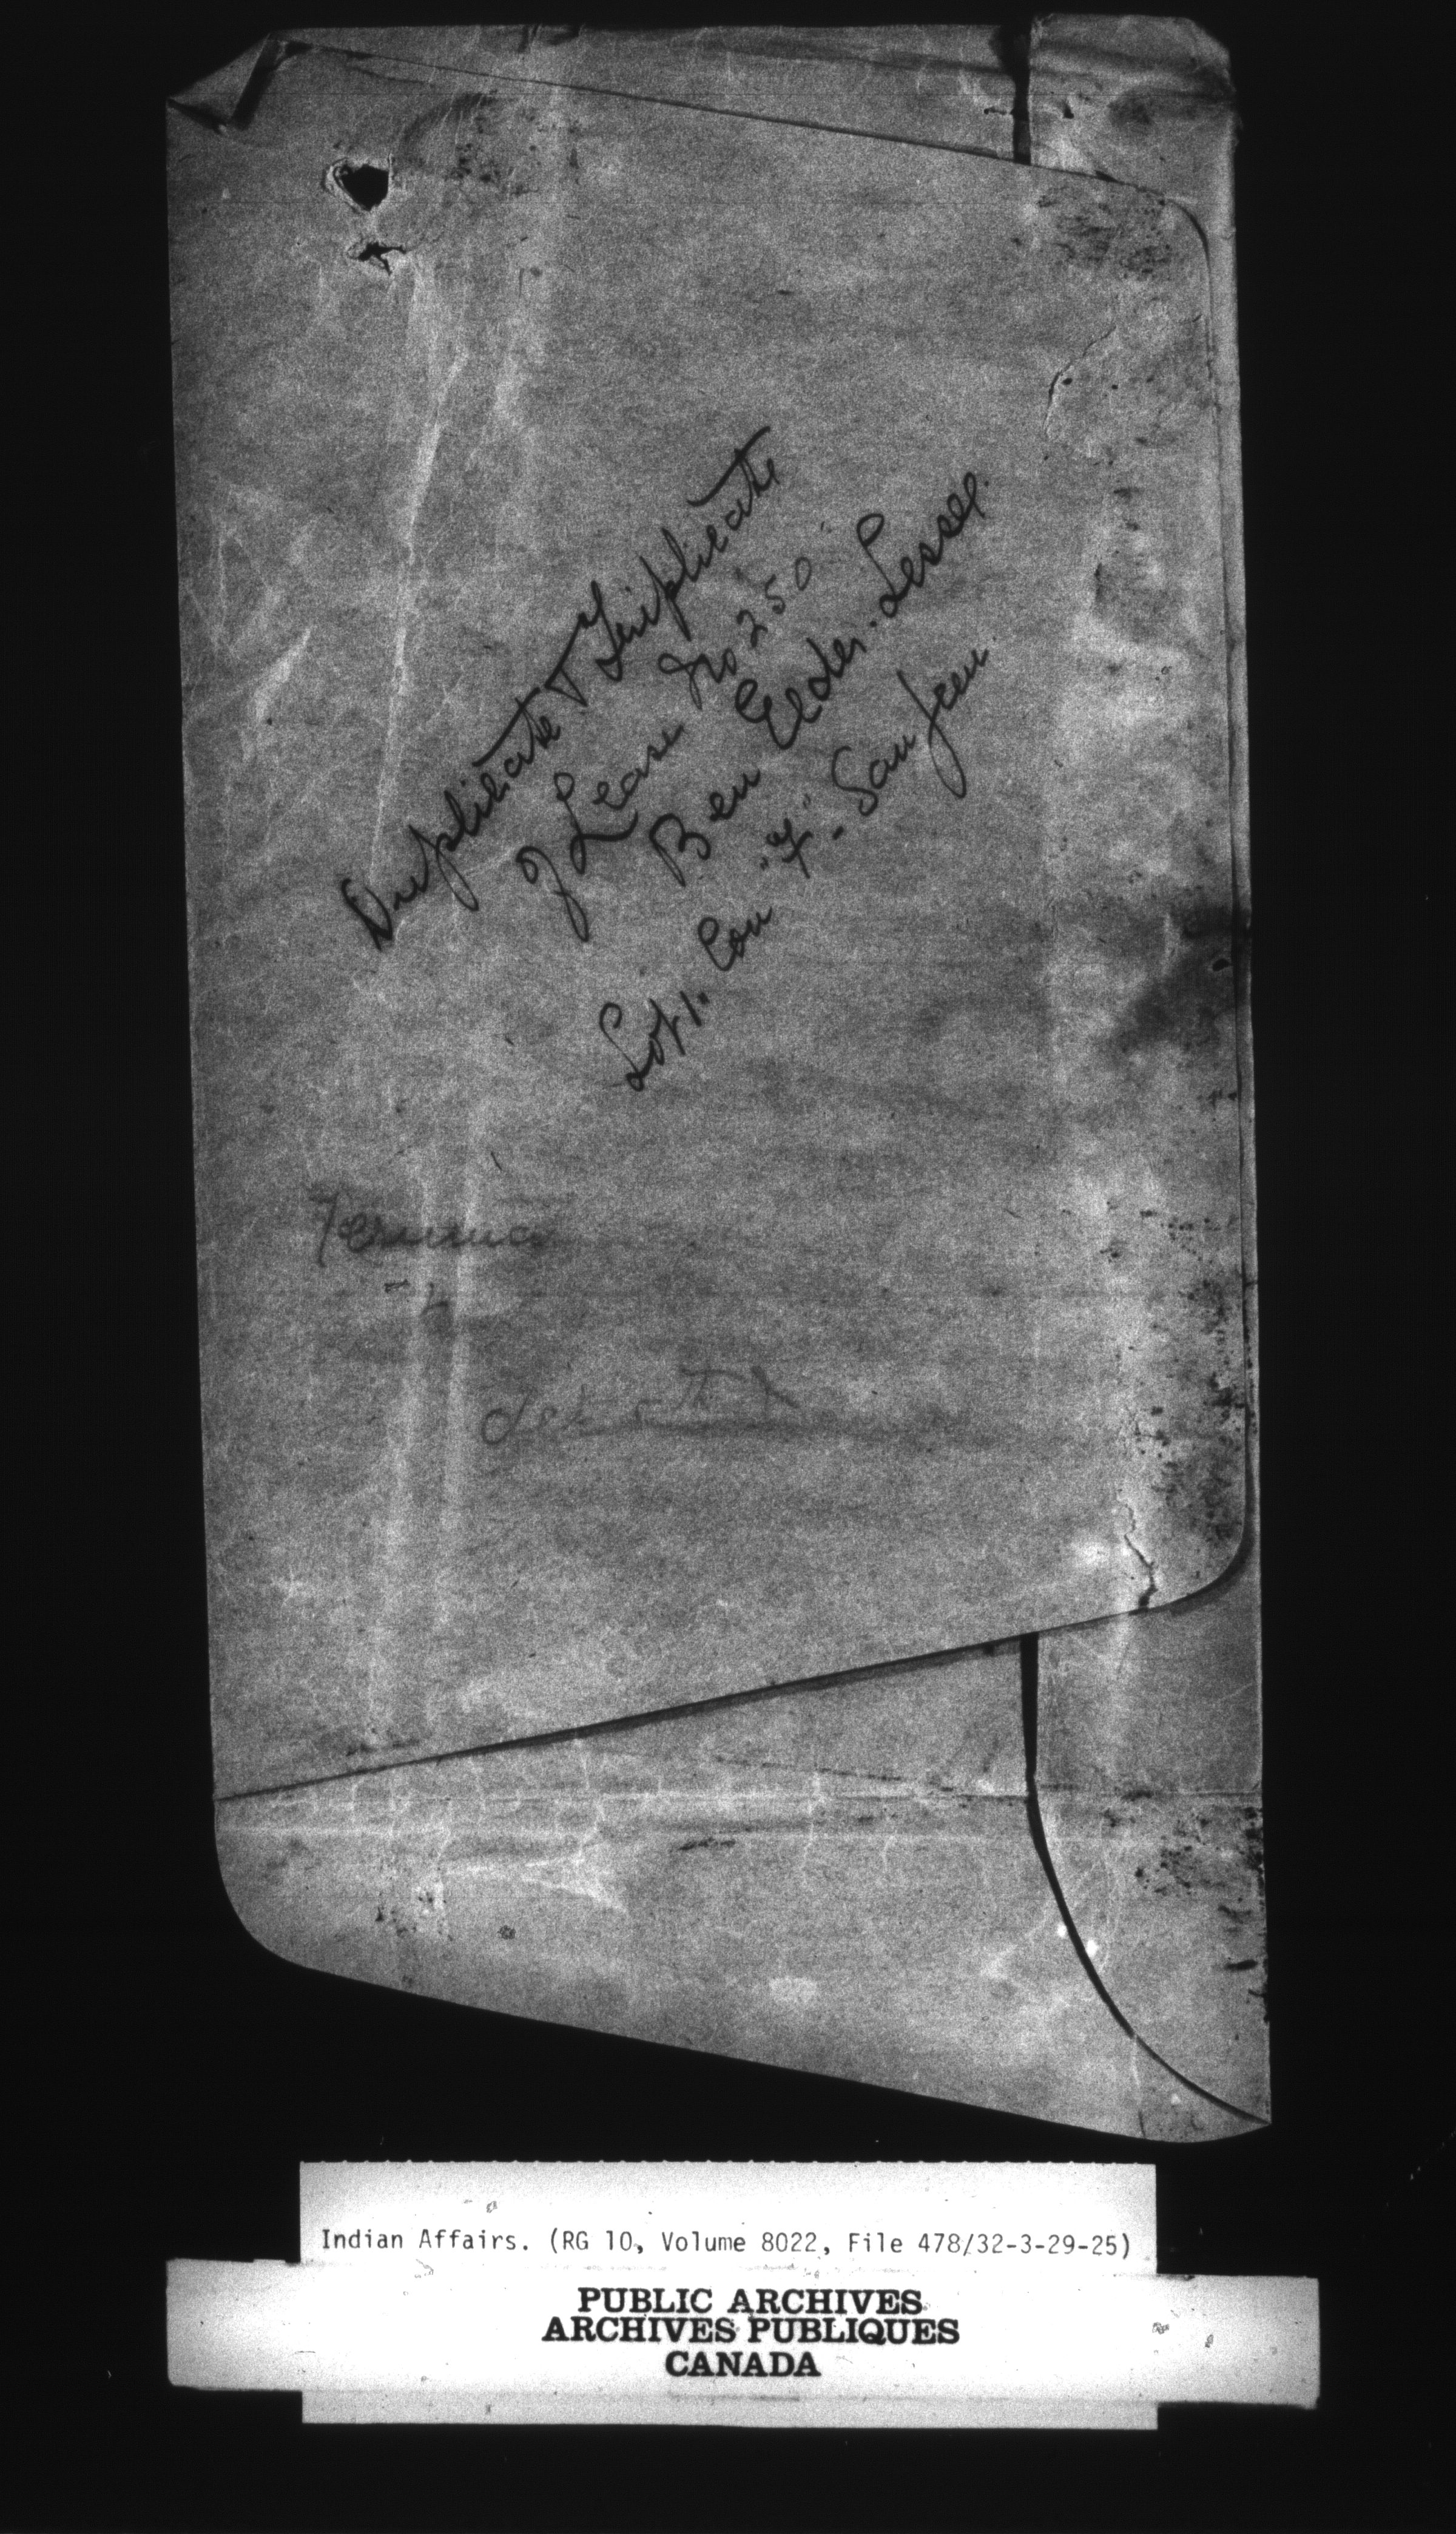 Duplicate & Triplicate
of Lease No 250
Ben Elder. Lessee.
Lot 1. Con "7". Saugeen
Indian Affairs. (RG 10, Volume 8022, File 478/32-3-29-25)
PUBLIC ARCHIVES
ARCHIVES PUBLIQUES
CANADA